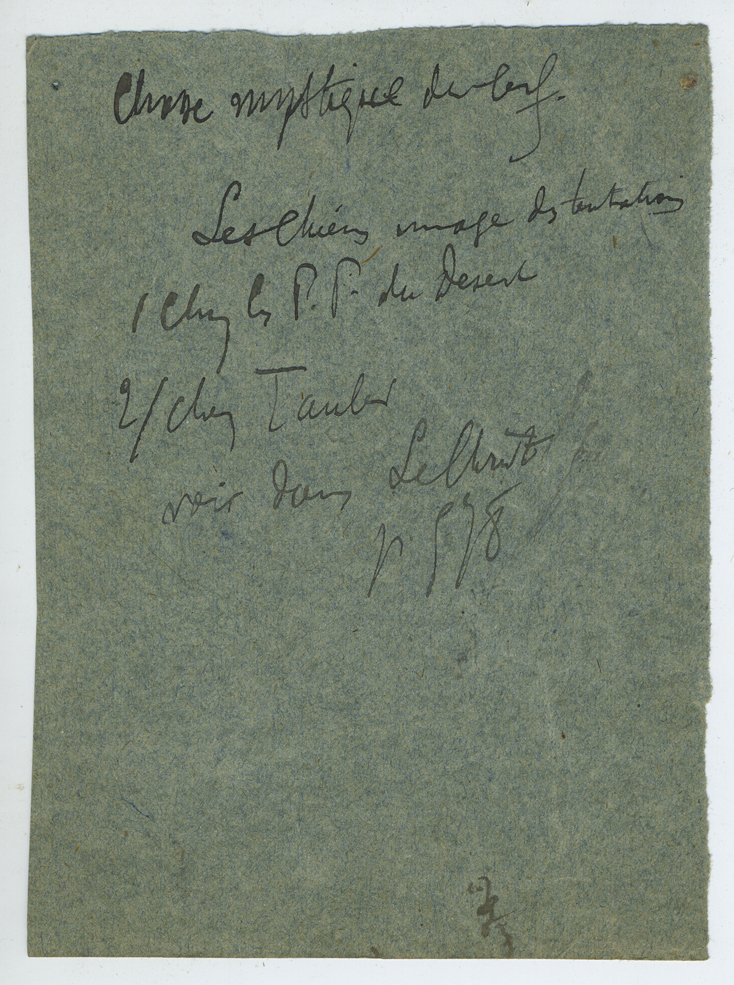 Chasse mystique du cerf.
Les Chiens image des tentations
1 Chez les P. P. du Desert
2/ chez Tauler
voir dans Le Christ
p 578